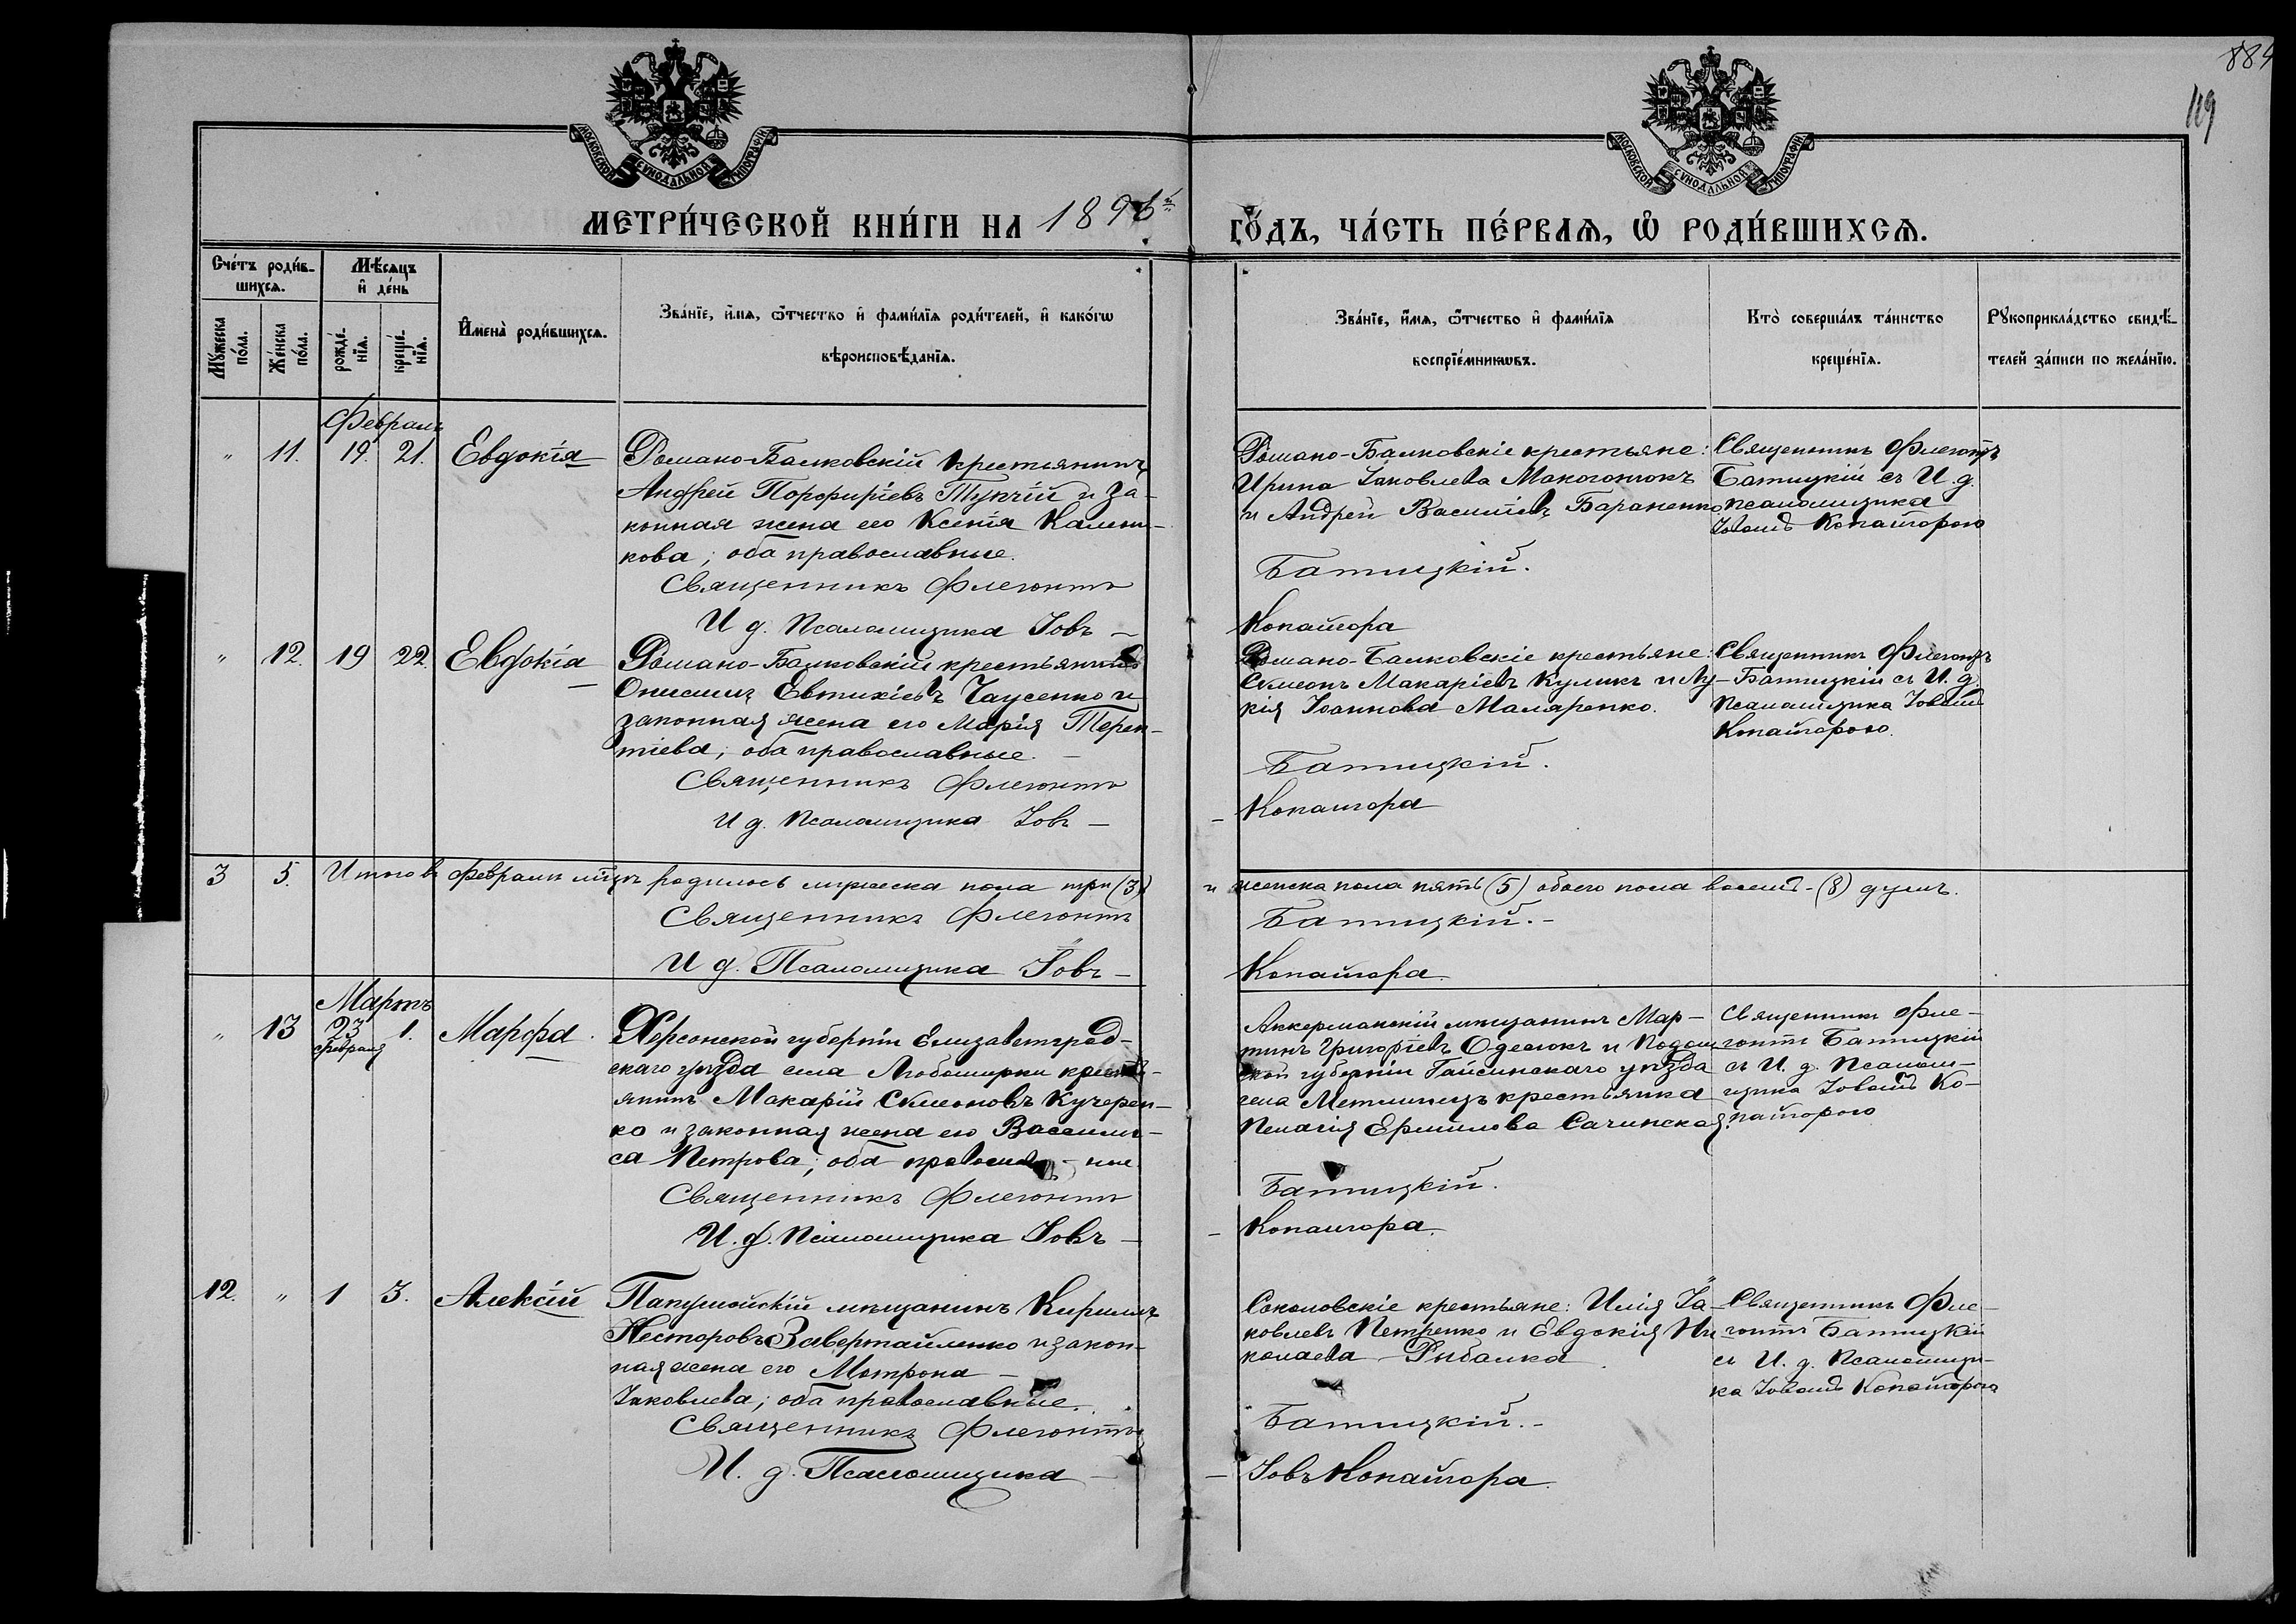 884
119
МОСКОВСКОЙ СУНОДАЛЬНОЙ ТИПОГРАФІИ
МОСКОВСКОЙ СУНОДАЛЬНОЙ ТИПОГРАФІИ
МЕТРИ́ЧЕСКОЙ КНИ́ГИ НА 1896й
ГО́ДЪ, ЧА́СТЬ ПЕ́РВАѦ, Ѡ҆ РОДИ́ВШИХСѦ.
Сче́тъ роди́в-
шихсѧ.
Мꙋ́жеска по́ла.
Же́нска по́ла.
Мѣ́сѧцъ
и҆ де́нь
рожде́-
нїѧ.
креще́-
нїѧ.
И҆мена̀ роди́вшихсѧ.
Зва́нїе, и҆́мѧ, ѻ҆́тчество и҆ фами́лїѧ роди́телей, и҆ како́гѡ
вѣроисповѣ́данїѧ.
Зва́нїе, и҆́мѧ, ѻ҆́тчество и҆ фами́лїѧ
воспрїе́мникѡвъ.
Кто̀ соверша́лъ та́инство
креще́нїѧ.
Рꙋкоприкла́дство свидѣ́-
телей за́писи по жела́нїю.
Февраль
" 11. 19. 21. Евдокія
Романо-Балковскій крестьянинъ
Андрей Порфиріевъ Тупчій и за-
конная жена его Ксенія Калени-
кова; оба православные.
Священникъ Флегонтъ
И д. Псаломщика Іовъ –
Романо-Балковскіе крестьяне:
Ирина Іаковлева Макогонюкъ
и Андрей Василіевъ Бараненко.
Батицкій.
Копайгора
Священникъ Флегонтъ
Батицкій съ И. д.
псаломщика
Іовомъ Копайгорою
" 12. 19 22. Евдокіа
Романо-Балковскій крестьянинъ
Онисимъ Евтихіевъ Чаусенко и
законная жена его Марія Терен-
тіева; оба православные. –
Священникъ Флегонтъ
И д. Псаломщика Іовъ –
Романо-Балковскіе крестьяне:
Симеонъ Макаріевъ Куликъ и Лу-
кія Іоаннова Маляренко.
Батицкій.
– Копайгора
Священникъ Флегонтъ
Батицкій съ И. д.
Псаломщика Іовомъ
Копайгорою.
3 5. Итого въ Февралѣ мѣцѣ родилось мужеска пола три (3)
и женска пола пять (5) обоего пола восемь (8) душъ.
Священникъ Флегонтъ
Батицкій. –
И д. Псаломщика Іовъ –
Копайгора.
Мартъ
" 13 23 февраля 1. Марфа.
Херсонской губерніи Елизаветград-
скаго уѣзда села Любомирки кресть-
янинъ Макарій Симеоновъ Кучерен-
ко и законная жена его Васили-
са Петрова; оба православ-ные
Священникъ Флегонтъ
И. д. Псаломщика Іовъ –
Аккерманскій мѣщанинъ Мар-
тинъ Григоріевъ Одесюкъ и Подол-
ской губерніи Гайсинскаго уѣзда
села Метлинецъ крестьянка
Пелагія Ермилова Сачинская.
Батицкій.
– Копайгора.
Священникъ Фле-
гонтъ Батицкій
съ И. д. Псалом-
щика Іовомъ Ко-
пайгорою
12. " 1 3. Алексій
Папушойскій мѣщанинъ Кириллъ
Несторовъ Завертайленко и закон-
ная жена его Матрона –
Іаковлева; оба православные.
Священникъ Флегонтъ
И. д. Псаломщика –
Соколовскіе крестьяне: Илія Іа-
ковлевъ Петренко и Евдокія Ни-
колаева Рыбалка.
Батицкій. –
– Іовъ Копайгора.
Священникъ Фле-
гонтъ Батицкій
съ И. д. Псаломщи-
ка Іовомъ Копайгорою